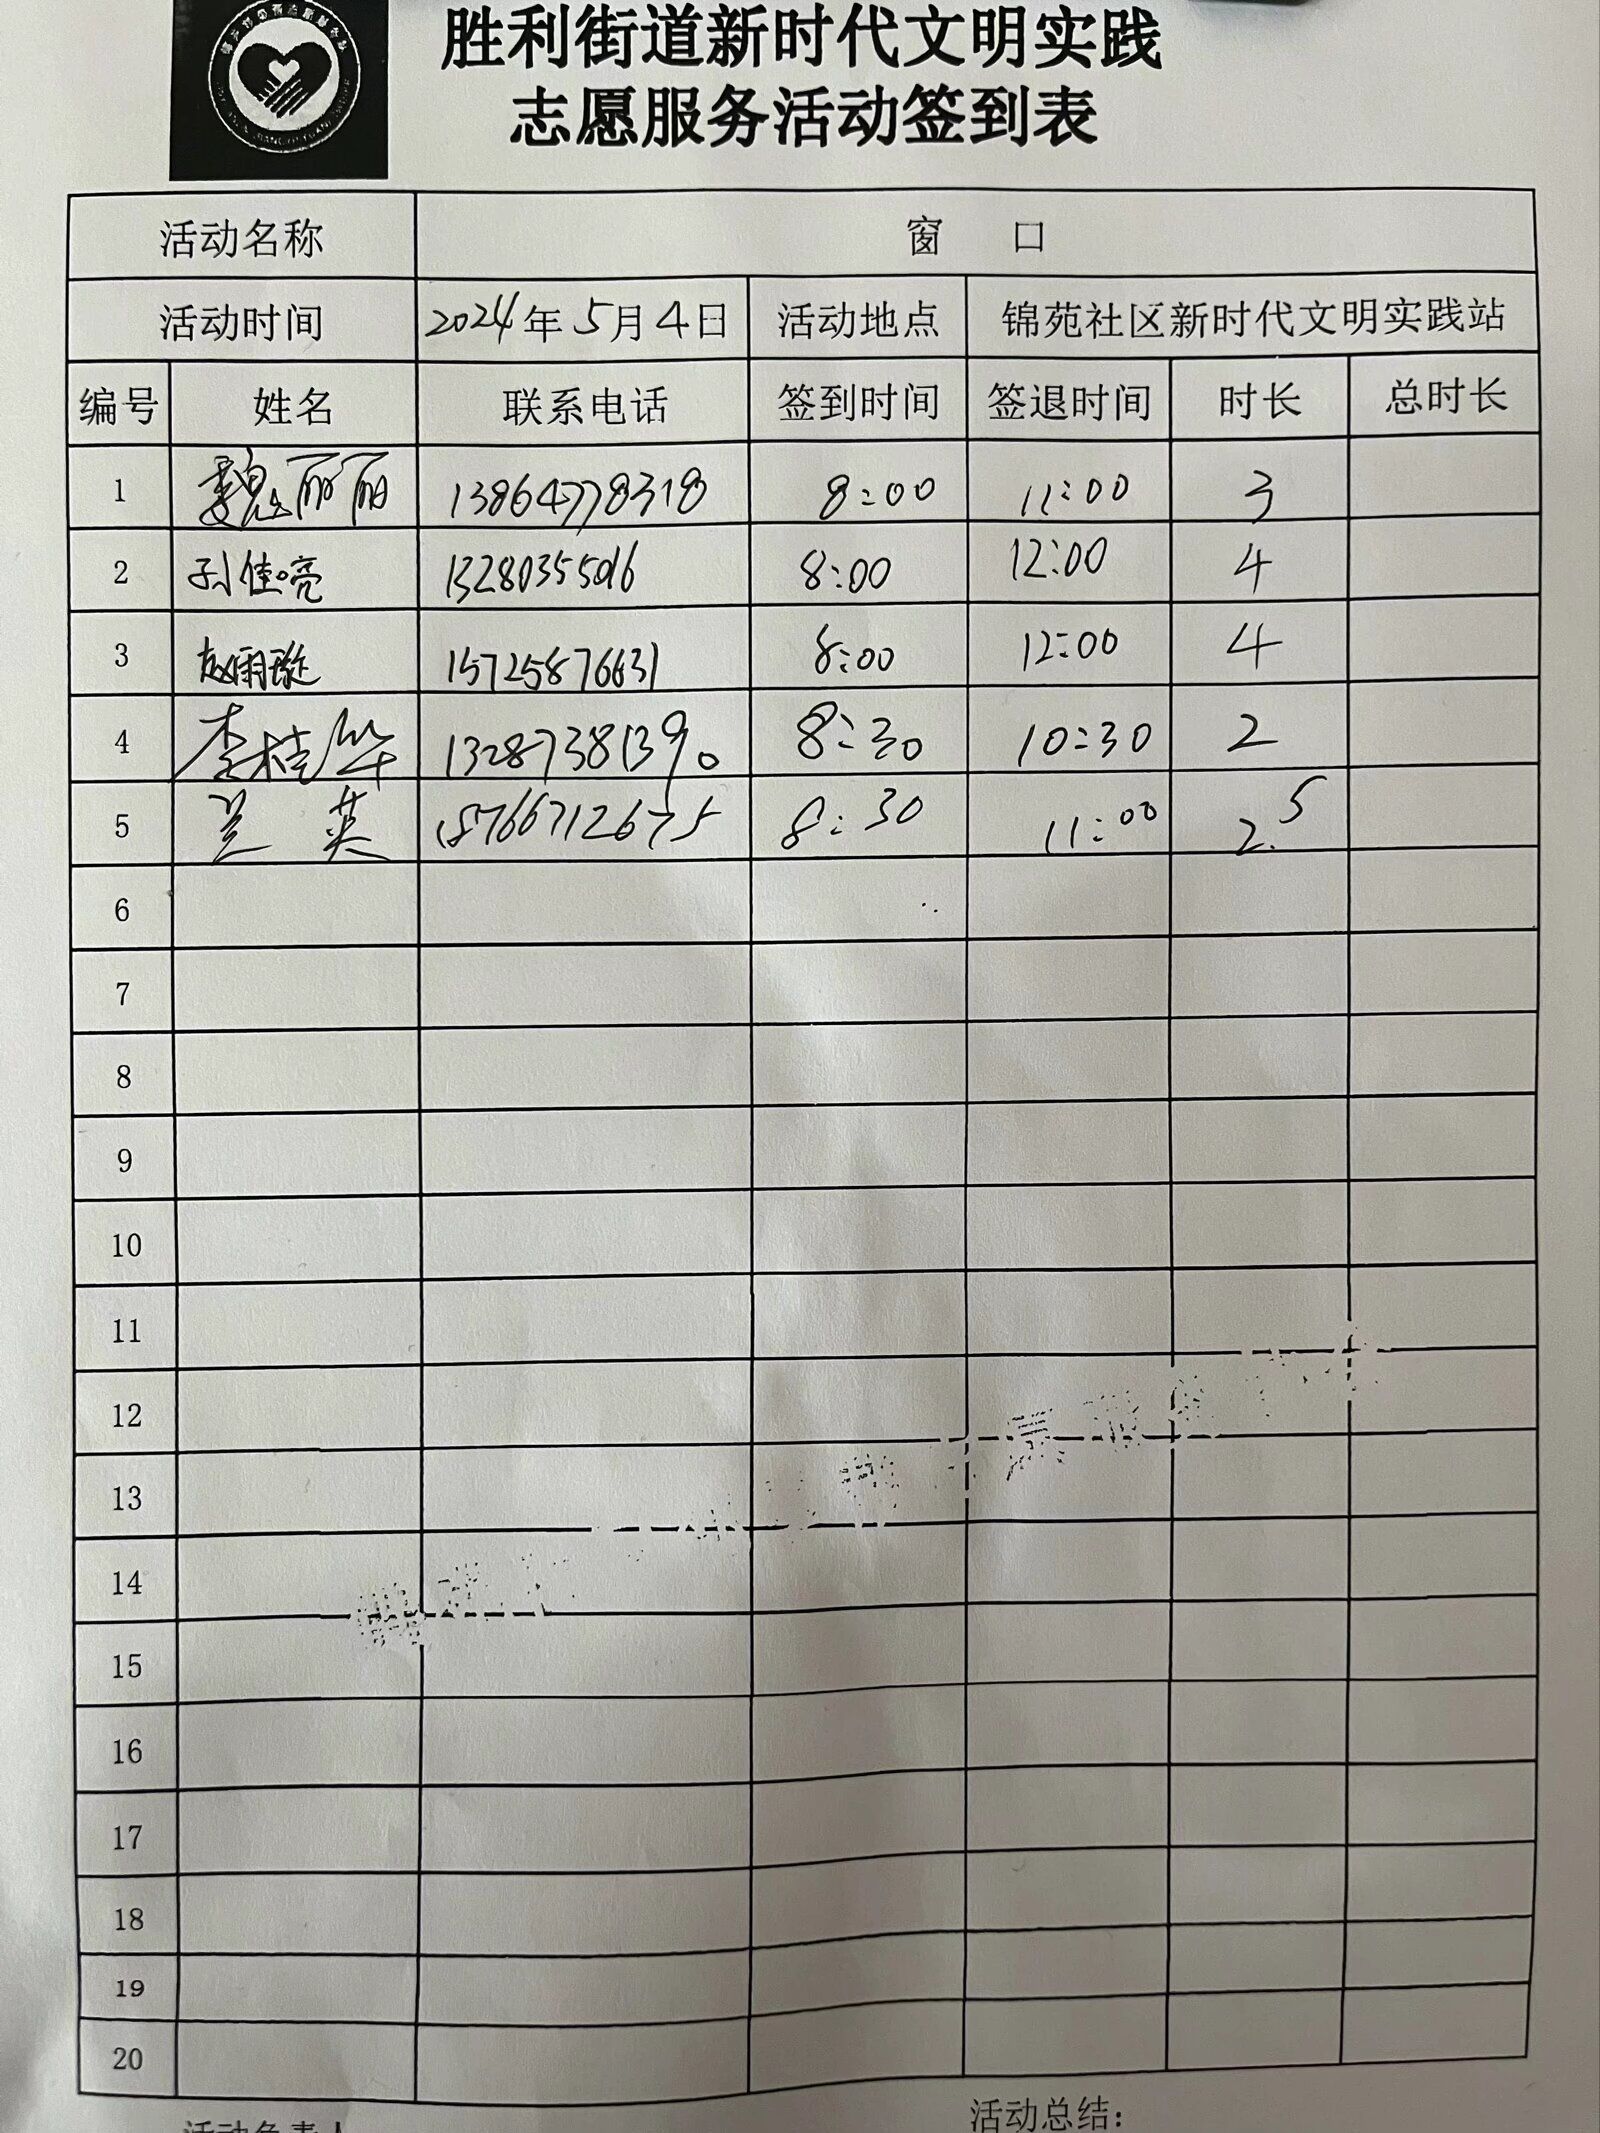 胜利街道新时代文明实践
志愿服务活动签到表
活动名称 窗 口
活动时间 2024年5月4日 活动地点 锦苑社区新时代文明实践站
编号 姓名 联系电话 签到时间 签退时间 时长 总时长
1 魏丽丽 13864778318 8:00 11:00 3
2 孙佳亮 13280355016 8:00 12:00 4
3 赵雨璇 15725876631 8:00 12:00 4
4 李桂华 13287381390 8:30 10:30 2
5 兰英 18766712675 8:30 11:00 2.5
6
7
8
9
10
11
12
13
14
15
16
17
18
19
20
活动负责人 活动总结: